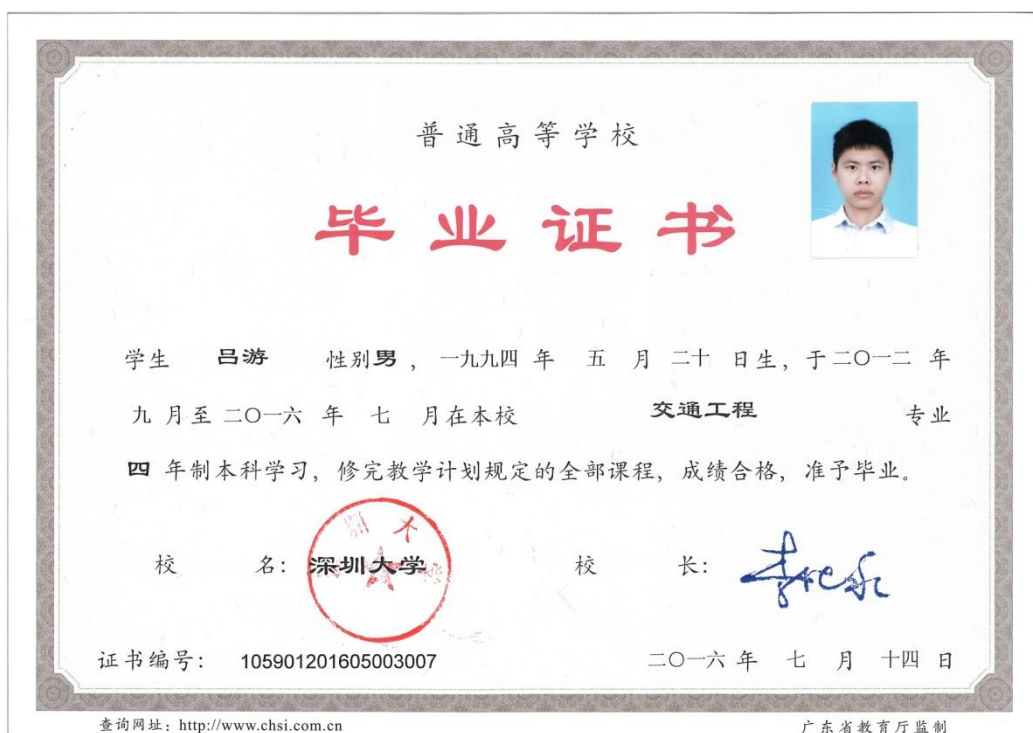 普通高等学校
毕业证书
学生 吕游 性别男，一九九四 年 五 月 二十 日生，于二〇一二 年
九 月至 二〇一六 年 七 月在本校 交通工程 专业
四 年制本科学习，修完教学计划规定的全部课程，成绩合格，准予毕业。
校 名：深圳大学 校 长：
证书编号： 105901201605003007 二〇一六 年 七 月 十四 日
查询网址：http://www.chsi.com.cn 广东省教育厅监制